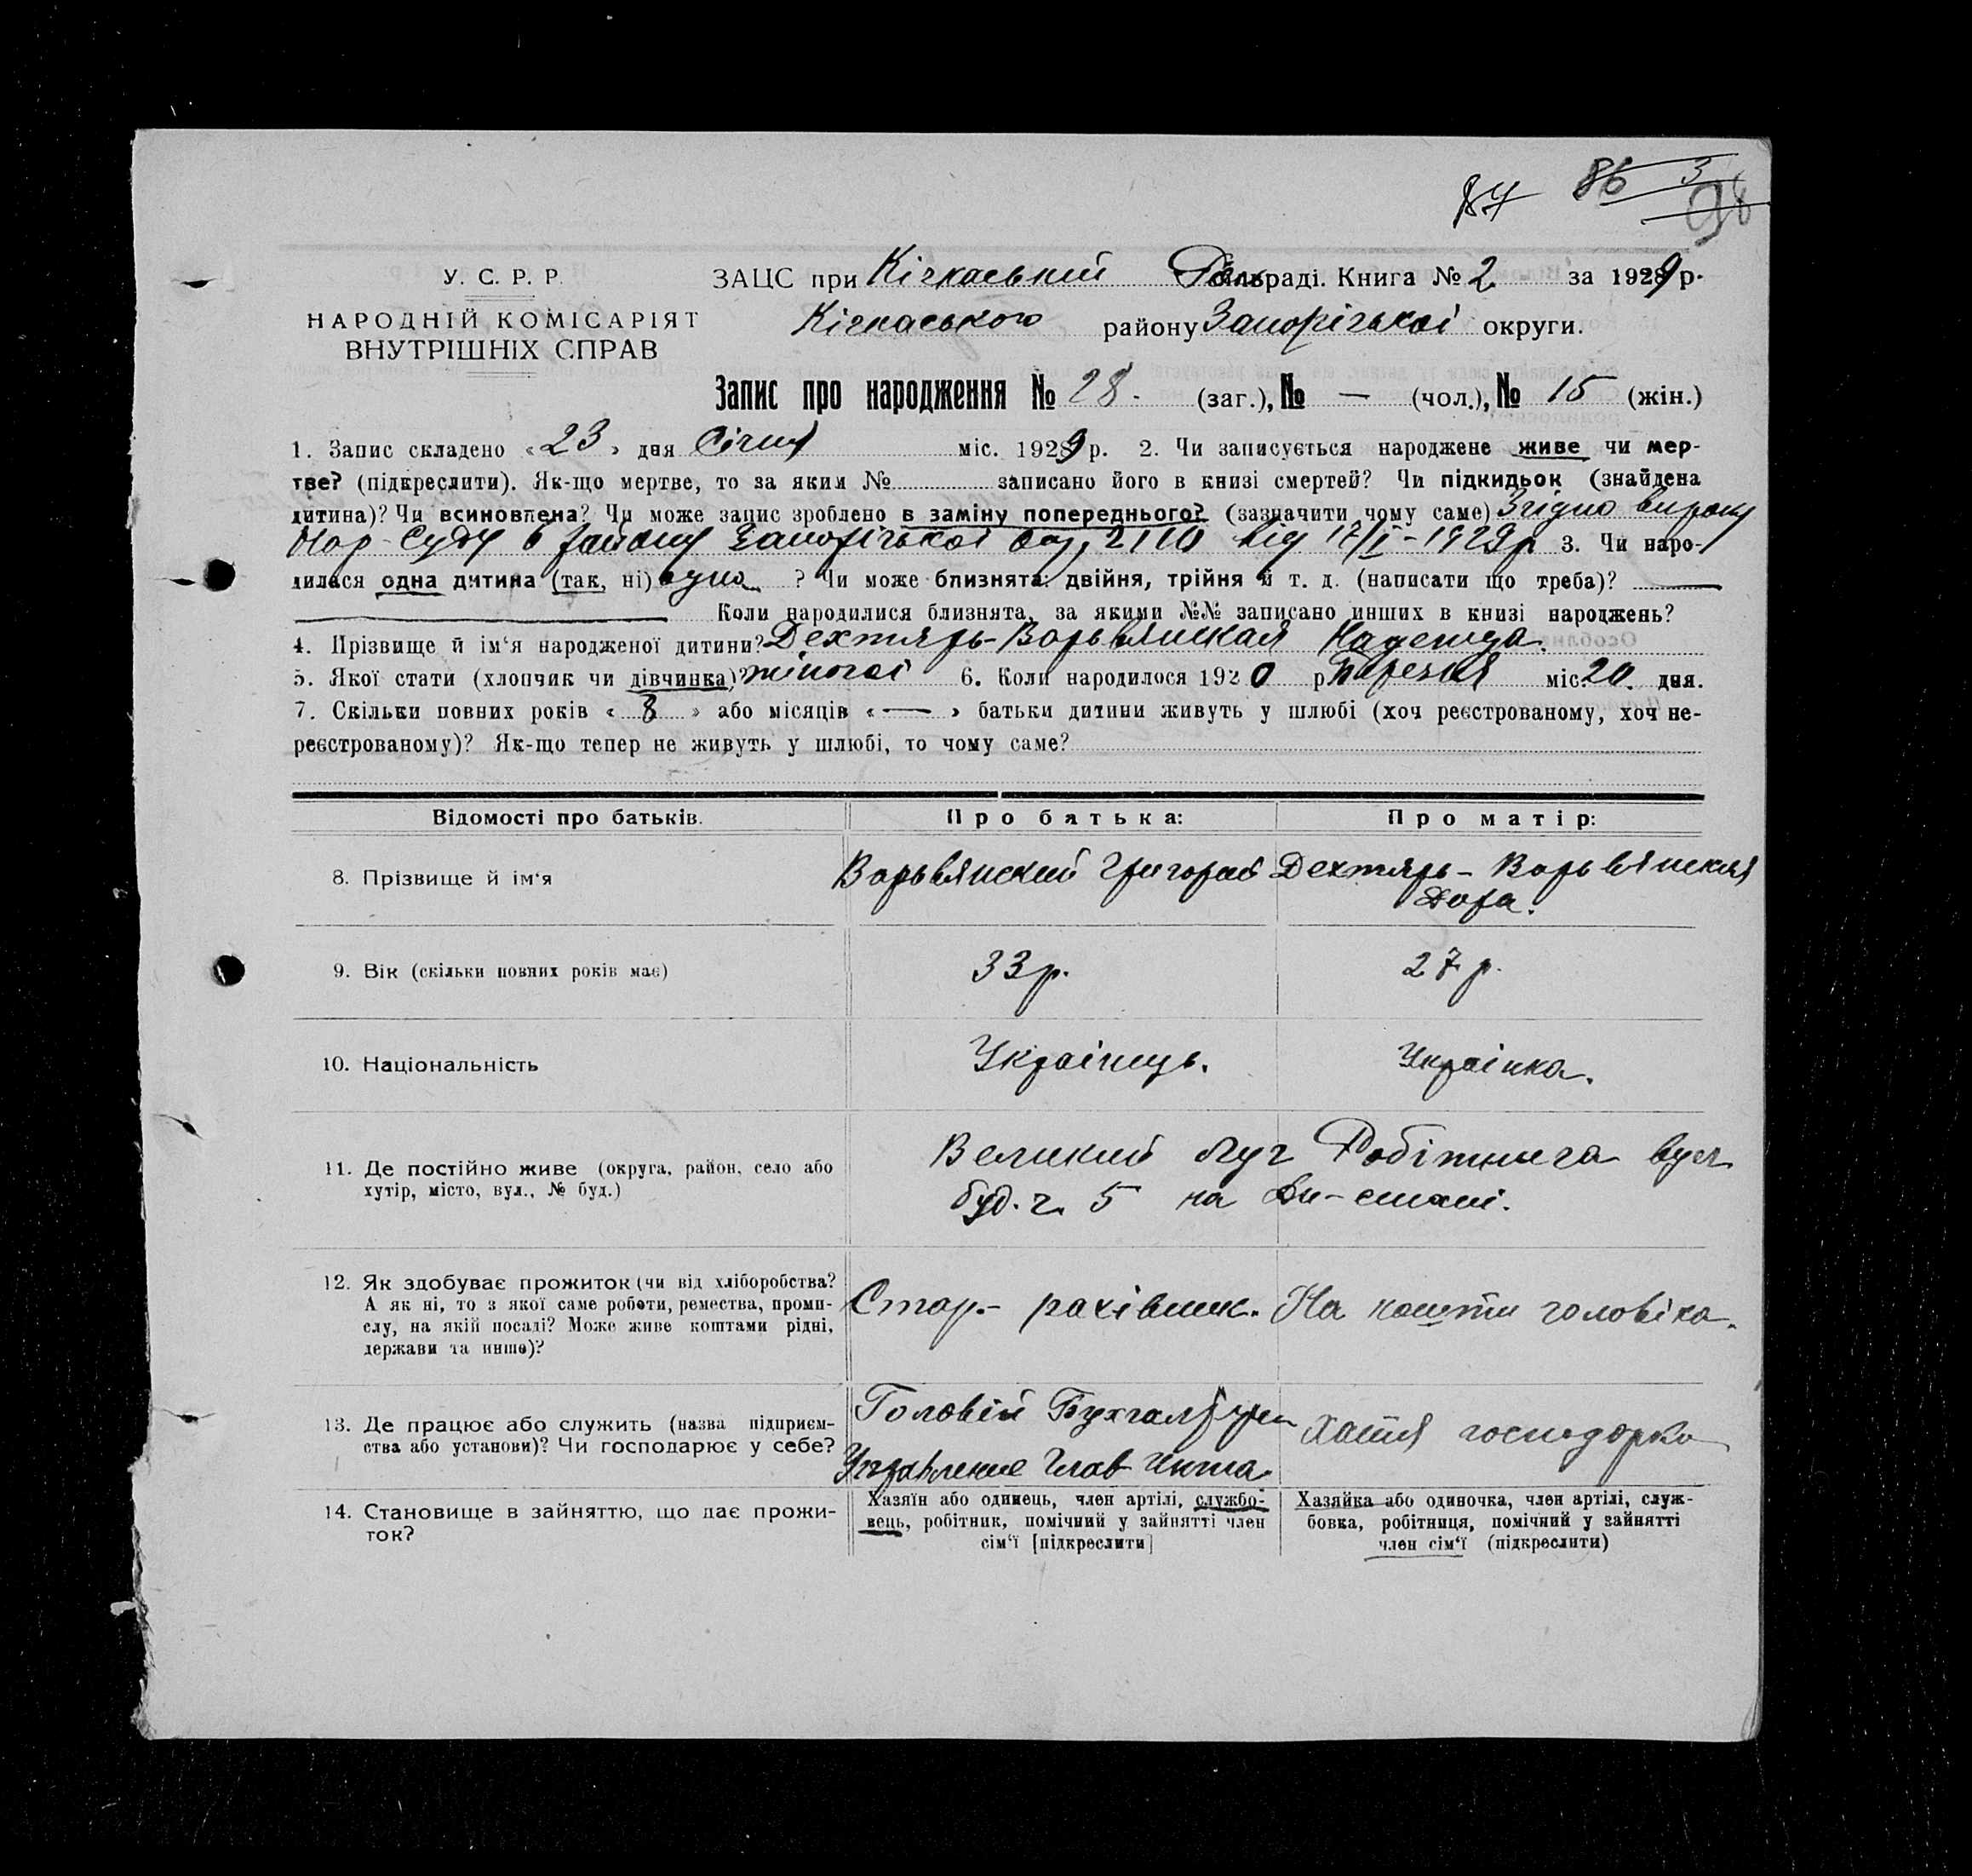 87 86 3
98
У. С. Р. Р.
НАРОДНІЙ КОМІСАРІЯТ
ВНУТРІШНІХ СПРАВ
ЗАЦС при Кічкаський раді. Книга № 2 за 1929 р.
Кічкаського району Запорізької округи.
Запис про народження № 28. (заг.), № — (чол.), № 15 (жін.)
1. Запис складено «23» дня Січня міс. 1929 р. 2. Чи записується народжене живе чи мер-
тве? (підкреслити). Як-що мертве, то за яким № записано його в книзі смертей? Чи підкидьок (знайдена
дитина)? Чи всиновлена? Чи може запис зроблено в заміну попереднього? (зазначити чому саме) Згідно вироку
Нар-Суду 6 району Запорізької від 17/I-1929 р. 3. Чи наро-
дилася одна дитина (так, ні) одна ? Чи може близнята: двійня, трійня й т. д. (написати що треба)? —
— Коли народилися близнята, за якими №№ записано инших в книзі народжень?
4. Прізвище й ім‘я народженої дитини? Дехтярь-Варьвянская Надежда.
5. Якої стати (хлопчик чи дівчинка)? жіночої 6. Коли народилося 1920 р. Березня міс. 20. дня.
7. Скільки повних років «8» або місяців «—» батьки дитини живуть у шлюбі (хоч реєстрованому, хоч не-
реєстрованому)? Як-що тепер не живуть у шлюбі, то чому саме?
Відомості про батьків. Про батька: Про матір:
8. Прізвище й ім‘я Варьвянский Григорий Дехтярь-Варьвянская
Дора.
9. Вік (скільки повних років має) 33 р. 27 р.
10. Національність Українець. Українка.
11. Де постійно живе (округа, район, село або
хутір, місто, вул., № буд.)
Великий Луг Робітнича вул
буд. ч. 5 на
12. Як здобуває прожиток (чи від хліборобства?
А як ні, то з якої саме роботи, ремества, проми-
слу, на якій посаді? Може живе коштами рідні,
держави та инше)?
Стар.- рахівник. На кошти чоловіка.
13. Де працює або служить (назва підприєм-
ства або установи)? Чи господарює у себе?
Головій Бухгалтерії
Управление Глав Инта.
Хатня господарка
14. Становище в зайняттю, що дає прожи-
ток?
Хазяїн або одинець, член артілі, службо-
вець, робітник, помічний у зайнятті член
сім‘ї [підкреслити]
Хазяйка або одиночка, член артілі, служ-
бовка, робітниця, помічний у зайнятті
член сім‘ї (підкреслити)